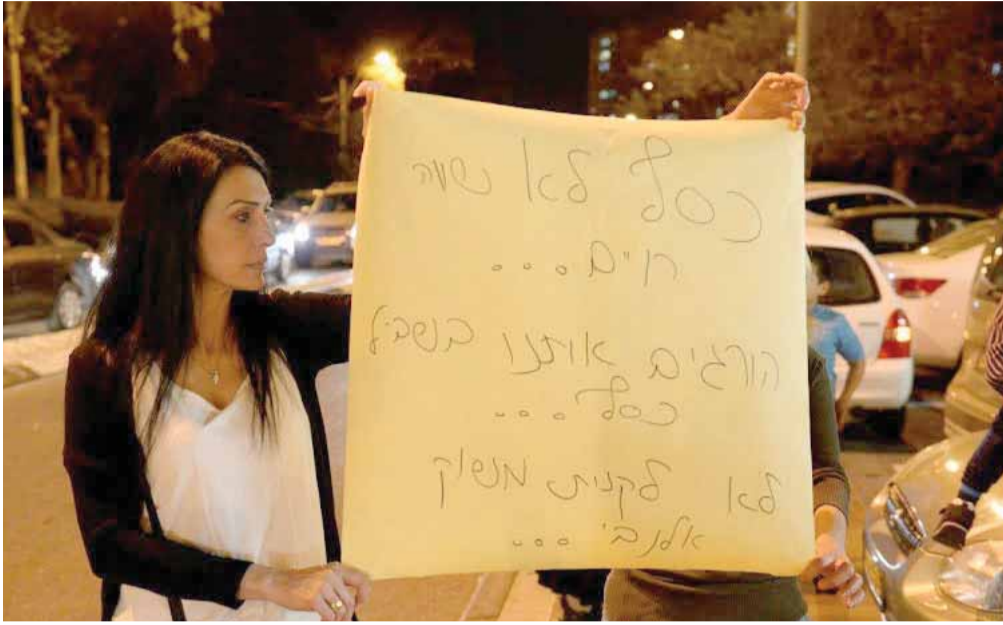 כסף לא שווה
חיים...
הורגים אותנו בשביל
כסף...
לא לקנית משוק
אלנבי...